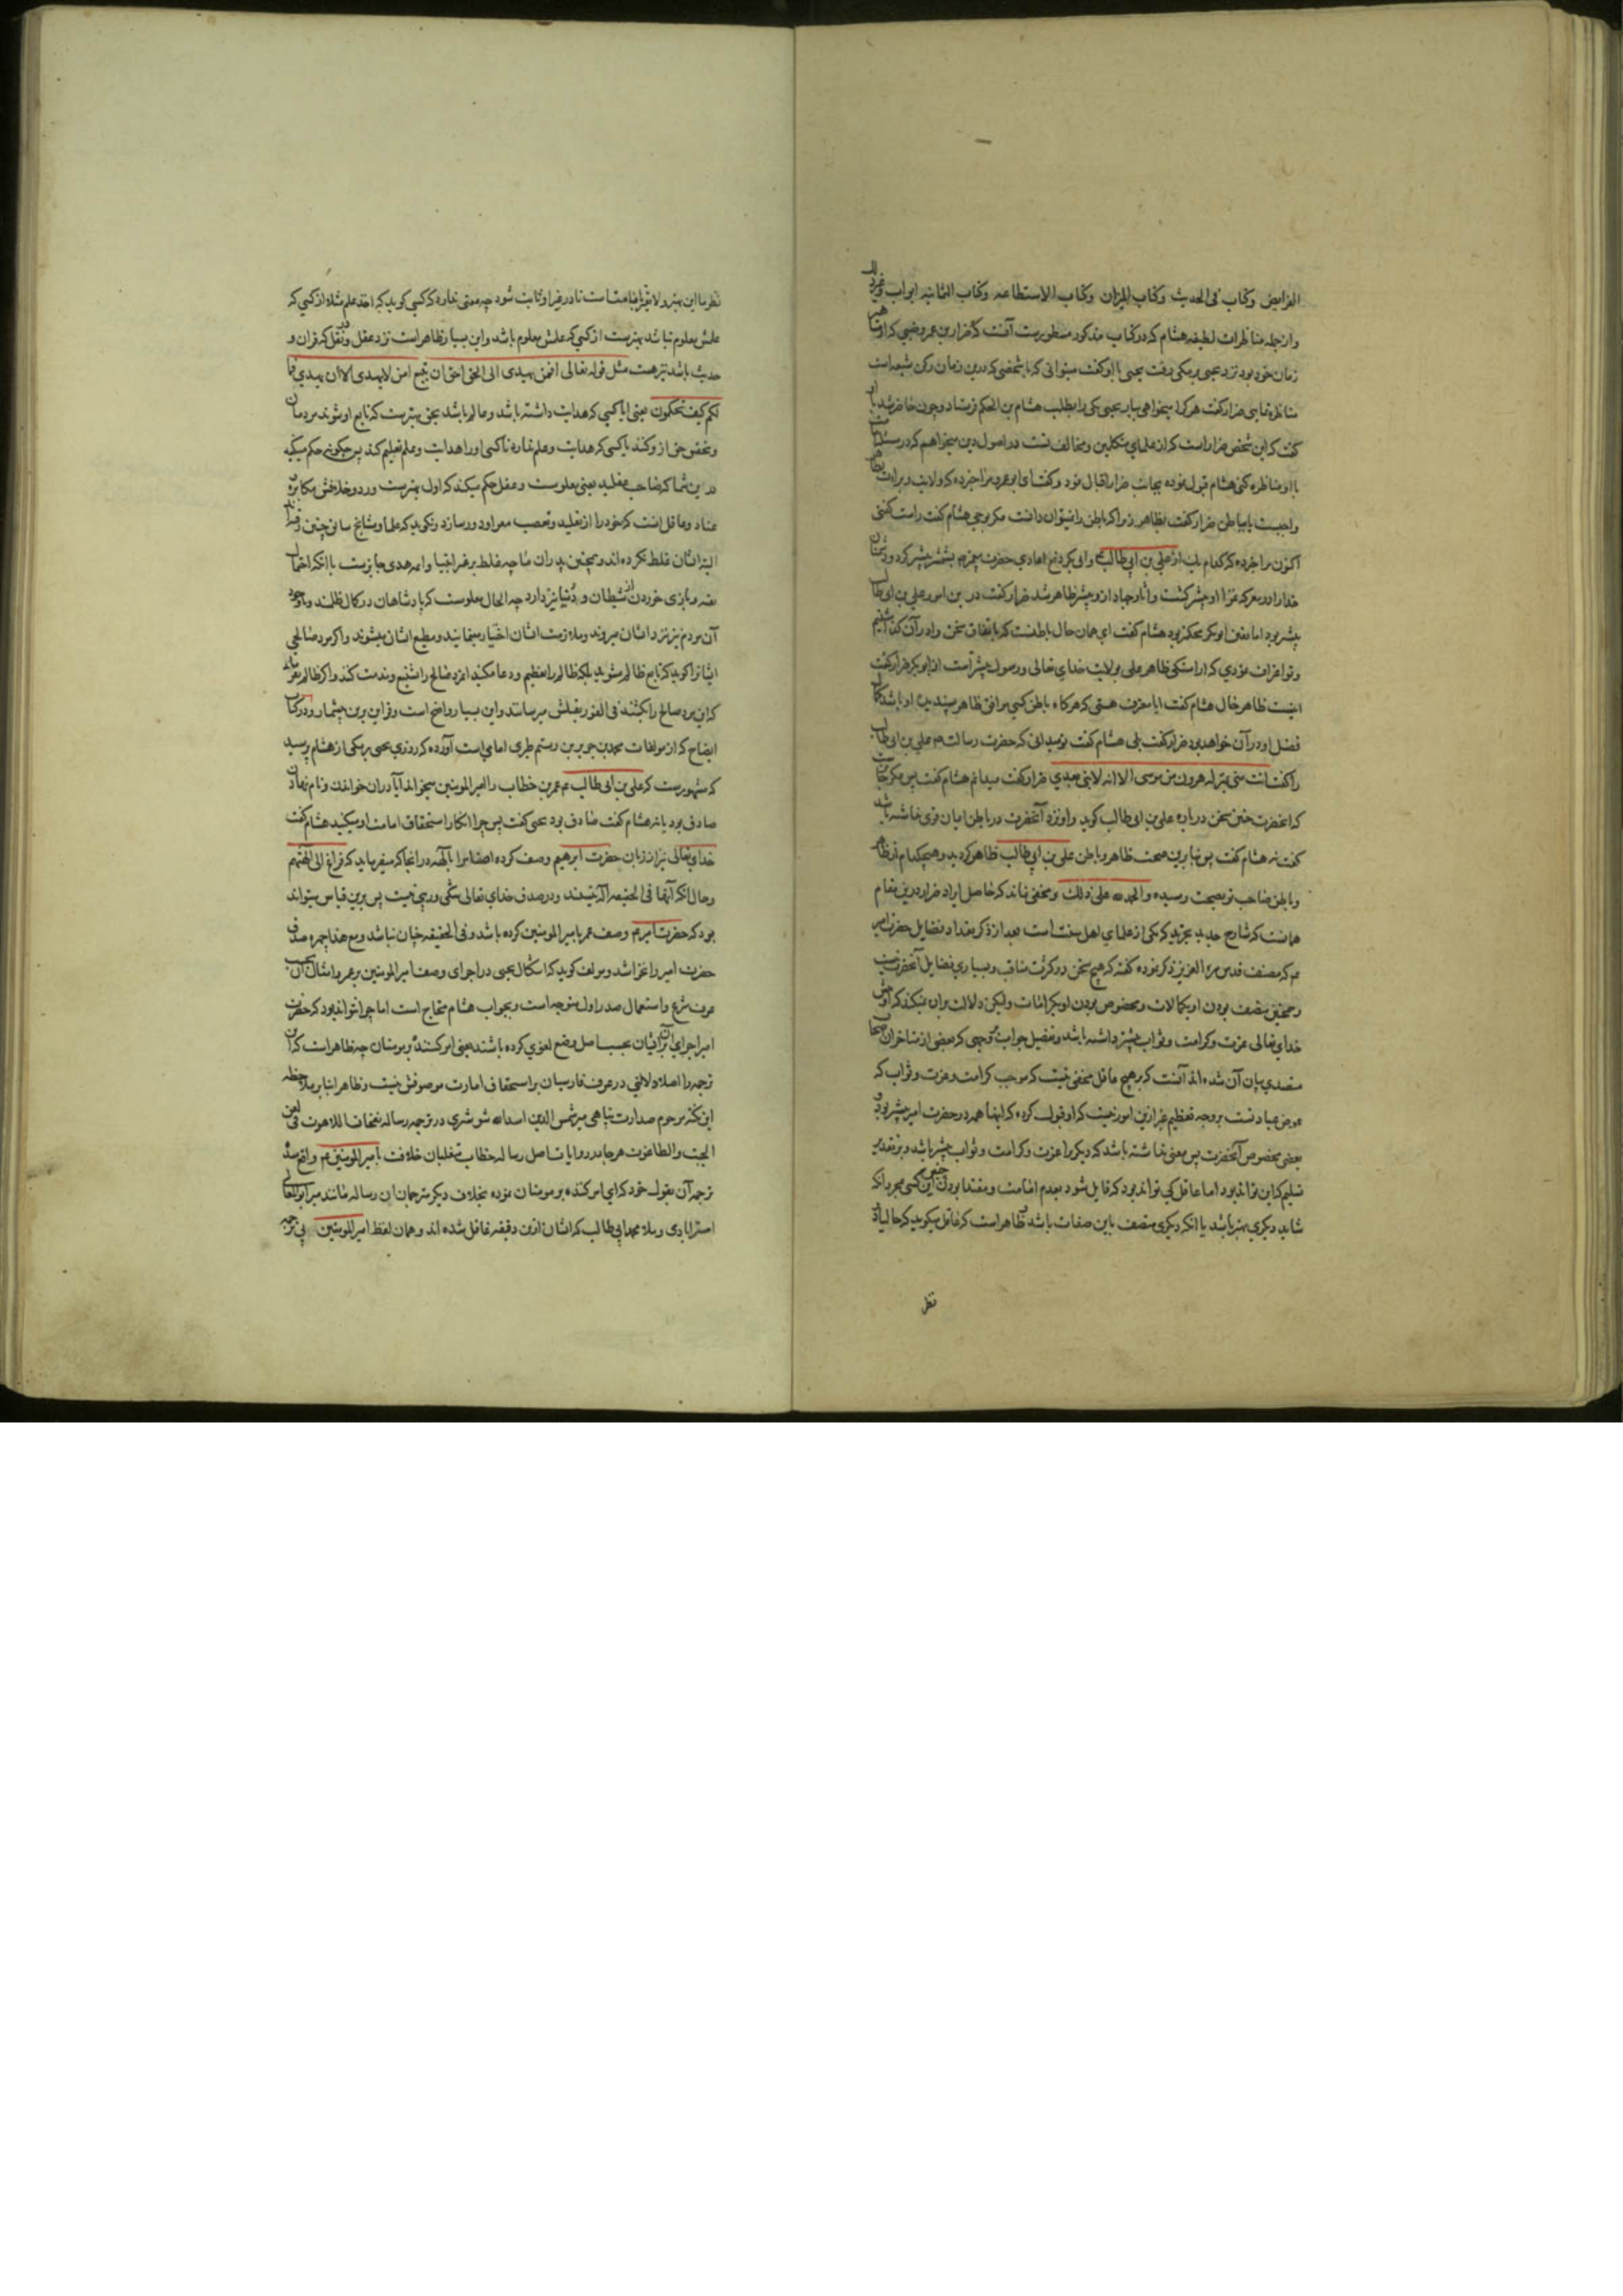 الفرایض وکتاب فی الحدیث وکتاب المیزان وکتاب الاستطاعه وکتاب الثمانیه ابواب وغیر ذلک
واز جمله مناظرات لطیفه هشام که در کتاب مذکور مسطورست آنست که ضرار بن عمرو ضبی که از
زمان خود بود نزد یحیی برمکی رفت یحیی با او گفت میتوانی که با شخصی که درین زمان رکن شیعه است
مناظره نمایی ضرار گفت هر کرا میخواهی بیار یحیی کسی را بطلب هشام بن الحکم فرستاد و چون حاضر شد با او
گفت که این شخص ضرارست که از علمای متکلمین و مخالف تست در اصول دین میخواهم که در مسئله امامت
با او مناظره کنی هشام قبول نموده بجانب ضرار اقبال نمود و گفت ای ابو عمرو مرا خبر ده که ولایت و براءت بظاهر
واجبست یا بباطن ضرار گفت بظاهر زیرا که باطن را نتوان دانست مگر بوحی هشام گفت راست گفتی
اکنون مرا خبر ده که کدام یک از علی بن ابی طالب و ابی بکر دفع اعادی حضرت پیغمبر بشمشیر بیشتر کرد و دشمنان
خدا را در معرکه غزا او بیشتر کشت و آثار جهاد ازو بیشتر ظاهر شد ضرار گفت درین امور علی بن ابی طالب
بیشتر بود اما یقین ابو بکر محکمتر بود هشام گفت ای همان حال باطنست که باتفاق سخن را در آن گذاشتیم
و تو اعتراف نمودی که از راستی ظاهر علی بولایت خدای تعالی و رسول بیشتر است از ابو بکر ضرار گفت
اینست ظاهر حال هشام گفت ایا معترف هستی که هرگاه باطن کسی موافق ظاهر پسندیده او باشد کمال
فضل او در آن خواهد بود ضرار گفت بلی هشام گفت تو میدانی که حضرت رسالت علی بن ابی طالب
را گفت انت منی بمنزله هرون من موسی الا انه لا نبی بعدی ضرار گفت میدانم هشام گفت پس مگر جایز است
که آنحضرت چنین سخن در باره علی بن ابی طالب گوید و او نزد آنحضرت در باطن ایمان قوی نداشته باشد
گفت نه هشام گفت پس بنابرین صحت ظاهر و باطن علی بن ابی طالب ظاهر گردید و هیچکدام از ظاهر
و باطن صاحب تو بصحت نرسیده والحمد لله علی ذلک و مخفی نماند که حاصل ایراد ضرار درین مقام
همانست که شارح جدید تجرید که یکی از علمای اهل سنت است بعد از ذکر تعداد فضایل حضرت امیر
که مصنف قدس سره العزیز ذکر نموده گفته که هیچ سخن در کثرت مناقب و بسیاری فضایل آنحضرت نیست
و همچنین متصف بودن او بکمالات و مخصوص بودن او بکرامات ولیکن دلالت بران نمیکند که او پیش
خدای تعالی عزت و کرامت و ثواب بیشتر داشته باشد و تفصیل جواب بوجهی که بعضی از متاخران اصحاب
متصدی بیان آن شده اند آنست که بر هیچ عاقل مخفی نیست که موجب کرامت و عزت و ثواب که
عوض عبادتست بر وجه تعظیم غیر ازین امور نیست که او قبول کرده که اینها همه در حضرت امیر بیشتر بود و
بعضی مخصوص آنحضرت پس معنی نداشته باشد که دیگر را عزت و کرامت و ثواب بیشتر باشد و بر تقدیر
تسلیم که این تواند بود اما عاقل کی تواند بود که قایل شود بعدم امامت و مقتدا بودن چنین کسی بمجرد آنکه
شاید دیگری بهتر باشد با انکه دیگری متصف باین صفات باشد ظاهر است که عاقل میگوید که حالیا در
نظر
نظر ما این بهتر و لایق بامامت است تا در غیر او ثابت شود چه معنی ندارد که کسی گوید که اخذ علم مثلا از کسی که
علمش معلوم نباشد بهترست از کسی که علمش معلوم باشد و این بسیار ظاهر است نزد عقل و در نقل که قران و
حدیث باشد نیز هست مثل قوله تعالی افمن یهدی الی الحق احق ان یتبع امن لا یهدی الا ان یهدی فما
لکم کیف تحکمون یعنی ایا کسی که هدایت داشته باشد و عالم باشد بحق بهترست که تابع او شوند مردمان
و تحقیق حق از و کنند یا کسی که هدایت و علم ندارد تا کسی او را هدایت و علم تعلیم کند پس چگونه حکم میکنید
صاحب عقلید یعنی معلومست و عقل حکم میکند که اول بهترست و رد و خلافش مکابره و
عناد و عاقل انست که خود را از تقلید و تعصب معرا و دور سازد و نگوید که علما و مشایخ ما چنین گفته اند
البته ایشان غلط نکرده اند و همچنین پدران ما چه غلط بر غیر انبیا و ایمه هدی جایزست با انکه احتمال
و بازی خوردن از شیطان و دنیا نیز دارد چه الحال معلومست که پادشاهان در کمال ظلمند و باوجود
آن مردم نیز نزد ایشان میروند و ملازمت ایشان اختیار مینمایند و مطیع ایشان میشوند و اگر مرد صالحی
ایشانرا گوید که تابع ظالم مشوید بلکه ظالم را تعظیم و دعا مکنید آنمرد صالح را تشنیع و مذمت کنند و اگر ظالم بفرماید
که این مرد صالح را بکشند فی الفور بقتلش میرسانند و این بسیار واضح است و قراین برین بیشمار و در کتاب
ایضاح که از مولفات محمد بن جریر بن رستم طبری امامی است آورده که روزی یحیی برمکی از هشام پرسید
که مشهورست که علی بن ابی طالب عمر بن خطاب را امیر المومنین میخواند آیا در ان خواندن و نام نهادن
صادق بود یا نه هشام گفت صادق بود یحیی گفت پس چرا انکار استحقاق امامت او میکنید هشام گفت
خدای تعالی نیز از زبان حضرت ابرهیم وصف کرده اصنام را بآلهه در آنجا که میفرماید که فراغ الی آلهتهم
و حال انکه آنها فی الحقیقه آلهه نیستند و در صدق خدای تعالی شکی و ریبی نیست پس برین قیاس میتواند
بود که حضرت امیر وصف عمر بامیر المومنین کرده باشد و فی الحقیقه چنان نباشد و مع هذا چهره صدق
حضرت امیر را نخراشد و مولف گوید که اشکال یحیی در اجرای وصف امیر المومنین بر عمر و امثال آن بحسب
عرف شرع و استعمال صدر اول متوجه است و بجواب هشام محتاج است اما چرا نتواند بود که حضرت
امیر اجرای آن بر ایشان بحسب اصل وضع لغوی کرده باشند یعنی امر کننده بر مومنان چه ظاهر است که این
ترجمه را اصلا دلالتی در عرف فارسیان بر استحقاق امارت موصوفش نیست و ظاهرا بنابر ملاحظه
این نکته مرحوم صدارت پناهی میر شمس الدین اسدالله شوشتری در ترجمه رساله نفحات اللاهوت فی لعن
الجبت والطاغوت هر جا در روایات اصل رساله خطاب متغلبان خلافت بامیر المومنین واقع شد
ترجمه آن بقول خود که ای امر کننده بر مومنان نموده بخلاف دیگر مترجمان ان رساله مانند میر ابو المعالی
استرابادی و ملا محمد ابی طالب که ایشان ازین دقیقه غافل شده اند و همان لفظ امیر المومنین بی ترجمه